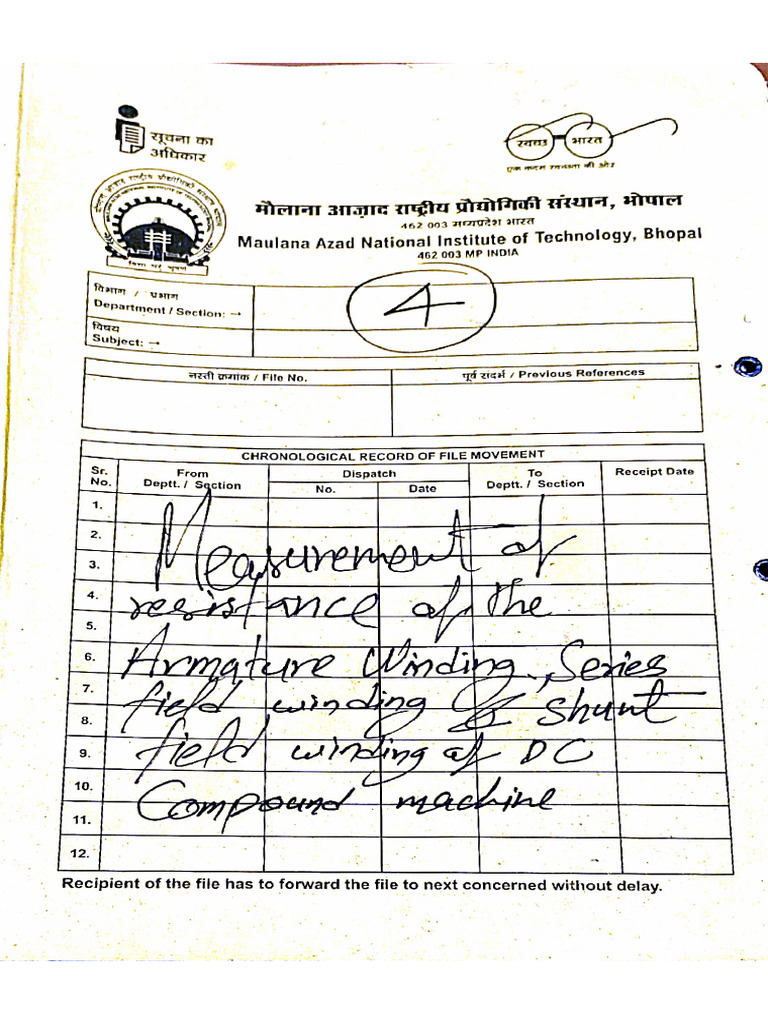 सूचना का
अधिकार
स्वच्छ भारत
एक कदम स्वच्छता की ओर
मौलाना आज़ाद राष्ट्रीय प्रौद्योगिकी संस्थान, भोपाल
462 003 मध्यप्रदेश भारत
Maulana Azad National Institute of Technology, Bhopal
462 003 MP INDIA
विभाग / प्रभाग
Department / Section: →
4
विषय
Subject: →
नस्ती क्रमांक / File No.
पूर्व संदर्भ / Previous References
CHRONOLOGICAL RECORD OF FILE MOVEMENT
Sr. No.
From Deptt. / Section
Dispatch
No.
Date
To Deptt. / Section
Receipt Date
1.
2.
3.
4.
5.
6.
7.
8.
9.
10.
11.
12.
Measurement of
resistance of the
Armature Winding, Series
field winding & Shunt
field winding of DC
Compound machine
Recipient of the file has to forward the file to next concerned without delay.